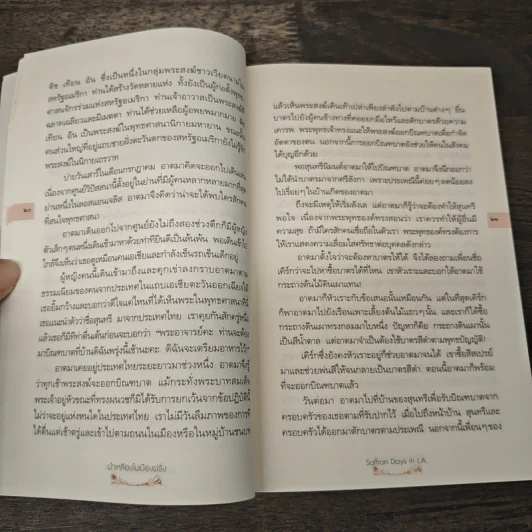 ติช เทียน อัน ซึ่งเป็นหนึ่งในกลุ่มพระสงฆ์ชาวเวียดนามใน
สหรัฐอเมริกา ท่านได้สร้างวัดหลายแห่ง ทั้งยังเป็นผู้ก่อตั้งพุทธ
ศาสนจักรร่วมแห่งสหรัฐอเมริกา ท่านเจ้าอาวาสเป็นพระสงฆ์
ฉลาดเฉลียวและมีเมตตา ท่านได้ช่วยเหลือผู้อพยพมากมาย ติช
เทียน อัน เป็นพระสงฆ์ในพุทธศาสนานิกายมหายาน ขณะนั้น
คนส่วนใหญ่ที่อยู่แถบชายฝั่งตะวันตกของสหรัฐอเมริกายังไม่รู้จัก
พระสงฆ์ในนิกายเถรวาท
บ่ายวันเสาร์ในเดือนกรกฎาคม อาตมาคิดจะออกไปเดินเล่น
เนื่องจากศูนย์วิปัสสนานี้ตั้งอยู่ในย่านที่มีผู้คนหลากหลายมากที่สุด
ย่านหนึ่งในลอสแอนเจลิส อาตมาจึงคิดว่าน่าจะได้พบใครสักคน
ที่สนใจพุทธศาสนา
อาตมาเดินออกไปจากศูนย์ยังไม่ถึงสองช่วงตึกก็มีผู้หญิง
ตัวเล็กๆ คนหนึ่งเดินเข้ามาหาด้วยท่าทียินดีเป็นล้นพ้น พอเดินเข้า
ใกล้จึงเห็นว่าเธอดูเหมือนคนเอเชียและกำลังเข็นรถเข็นเด็กอยู่
ผู้หญิงคนนี้เดินเข้ามาถึงและคุกเข่าลงกราบอาตมาตาม
ธรรมเนียมของคนจากประเทศในแถบเอเชียตะวันออกเฉียงใต้
เธอยิ้มกว้างและบอกว่าดีใจแค่ไหนที่ได้เห็นพระในพุทธศาสนาที่นี่
เธอแนะนำตัวว่าชื่อสุนทรี มาจากประเทศไทย เราคุยกันสักครู่หนึ่ง
แล้วเธอก็มีท่าทีตื่นเต้นก่อนจะบอกว่า "พระอาจารย์คะ ท่านจะต้อง
มาบิณฑบาตที่บ้านดิฉันพรุ่งนี้เช้านะคะ ดิฉันจะเตรียมอาหารไว้"
อาตมาเคยอยู่ประเทศไทยระยะยาวมาช่วงหนึ่ง อาตมาจึงรู้
ว่าทุกเช้าพระสงฆ์จะออกบิณฑบาต แม้กระทั่งพระบาทสมเด็จ
พระเจ้าอยู่หัวขณะที่ทรงผนวชก็มิได้รับการยกเว้นจากข้อปฏิบัตินี้
ไม่ว่าจะอยู่แห่งหนใดในประเทศไทย เราไม่มีวันลืมภาพของการที่
ได้ตื่นแต่เช้าตรู่และเข้าไปตามถนนในเมืองหรือในหมู่บ้านชนบท
๒๐
ผ้าเหลืองในเมืองฝรั่ง
แล้วเห็นพระสงฆ์เดินเท้าเปล่าเดียงลำพังไปตามบ้านต่างๆ ยื่น
บาตรไปยังผู้คนข้างทางที่คอยยกมือไหว้และตักบาตรด้วยความ
เคารพ พระพุทธเจ้าทรงแนะให้พระสงฆ์ออกบิณฑบาตเพื่อกำจัด
อัตตาของตน นอกจากนี้การออกบิณฑบาตยังช่วยให้คนในสังคม
ได้บุญอีกด้วย
พอสุนทรีนิมนต์อาตมาให้ไปบิณฑบาต อาตมาจึงฉุกคิดว่า
ไม่ได้นำบาตรมาจากศรีลังกา เพราะประเพณีนี้ค่อยๆ ลดน้อยลง
ไปเรื่อยๆ ในบ้านเกิดของอาตมา
ถึงจะมีเหตุให้เริ่มลังเล แต่อาตมาก็รู้ว่าจะต้องทำให้สุนทรี
พอใจ เนื่องจากพระพุทธองค์ทรงสอนว่า เราควรทำให้ผู้อื่นมี
ความสุข ถ้ามีใครสักคนเชื่อถือในตัวเรา พระพุทธองค์ทรงต้องการ
ให้เราแสดงความเลื่อมใสศรัทธาต่อบุคคลดังกล่าว
อาตมาตั้งใจว่าจะต้องหาบาตรให้ได้ จึงได้ลองถามเพื่อนชื่อ
เดิร์กว่าจะไปหาซื้อบาตรได้ที่ไหน เขาหัวเราะและบอกให้อาตมาใช้
กระถางต้นไม้ดินเผาแทน!
อาตมาก็หัวเราะกับข้อเสนอนั้นเหมือนกัน แต่ในที่สุดเดิร์ก
ก็พาอาตมาไปยังเรือนเพาะเลี้ยงต้นไม้แถวๆ นั้น และเราก็ได้ซื้อ
กระถางดินเผาทรงกลมมาใบหนึ่ง ปัญหาก็คือ กระถางดินเผานั้น
เป็นสีน้ำตาล แต่อาตมาจำเป็นต้องใช้บาตรสีดำตามพุทธบัญญัติ!
เดิร์กซึ่งยังคงหัวเราะอยู่ก็ช่วยอาตมาจนได้ เขาซื้อสีสเปรย์
มาและช่วยพ่นสีให้จนกลายเป็นบาตรสีดำ ตอนนี้อาตมาก็พร้อม
ที่จะออกบิณฑบาตแล้ว
วันต่อมา อาตมาไปที่บ้านของสุนทรีเพื่อรับบิณฑบาตจาก
ครอบครัวของเธอตามที่รับปากไว้ เมื่อไปถึงหน้าบ้าน สุนทรีและ
ครอบครัวได้ออกมาตักบาตรตามประเพณี นอกจากนี้เพื่อนๆ ของ
Saffron Days in L.A.